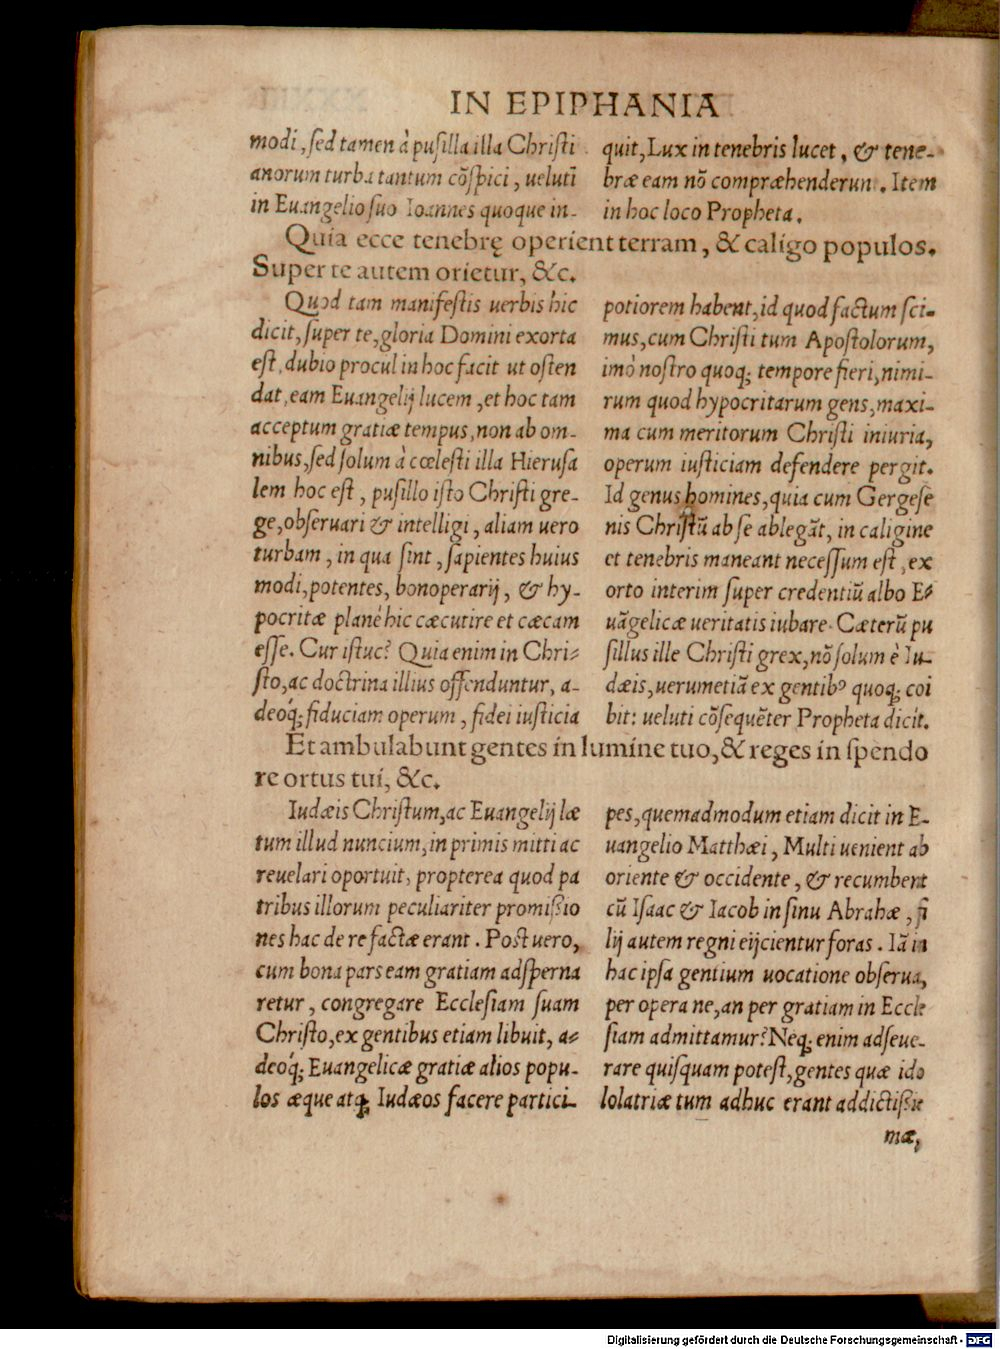 IN EPIPHANIA
modi, sed tamen à pusilla illa Christi
anorum turba tantum cõspici, ueluti
in Euangelio suo Ioannes quoque in-
quit, Lux in tenebris lucet, & tene-
bræ eam nõ compræhenderun. Item
in hoc loco Propheta.
Quia ecce tenebrę operient terram, & caligo populos.
Super te autem orietur, &c.
Quod tam manifestis uerbis hic
dicit, super te, gloria Domini exorta
est, dubio procul in hoc facit ut osten
dat, eam Euangelij lucem, et hoc tam
acceptum gratiæ tempus, non ab om-
nibus, sed solum à cœlesti illa Hierusa
lem hoc est, pusillo isto Christi gre-
ge, obseruari & intelligi, aliam uero
turbam, in qua sint, sapientes huius
modi, potentes, bonoperarij, & hy-
pocritæ planè hic cæcutire et cæcam
esse. Cur istuc? Quia enim in Chri-
sto, ac doctrina illius offenduntur, a-
deoq́; fiduciam operum, fidei iusticia
potiorem habent, id quod factum sci-
mus, cum Christi tum Apostolorum,
imò nostro quoq; tempore fieri, nimi-
rum quod hypocritarum gens, maxi-
ma cum meritorum Christi iniuria,
operum iusticiam defendere pergit.
Id genus homines, quia cum Gergese
nis Christũ ab se ablegãt, in caligine
et tenebris maneant necessum est, ex
orto interim super credentiũ albo E-
uãgelicæ ueritatis iubare. Cæterũ pu
sillus ille Christi grex, nõ solum è Iu-
dæis, uerumetiã ex gentibꝰ quoq; coi
bit: ueluti cõsequẽter Propheta dicit.
Et ambulabunt gentes in lumine tuo, & reges in spendo
re ortus tui, &c.
Iudæis Christum, ac Euangelij læ
tum illud nuncium, in primis mitti ac
reuelari oportuit, propterea quod pa
tribus illorum peculiariter promissio
nes hac de re factæ erant. Post uero,
cum bona pars eam gratiam adsperna
retur, congregare Ecclesiam suam
Christo, ex gentibus etiam libuit, a-
deoq́; Euangelicæ gratiæ alios popu-
los æque atq; Iudæos facere partici-
pes, quemadmodum etiam dicit in E-
uangelio Matthæi, Multi uenient ab
oriente & occidente, & recumbent
cũ Isaac & Iacob in sinu Abrahæ, fi
lij autem regni eijcientur foras. Iã in
hac ipsa gentium uocatione obserua,
per opera ne, an per gratiam in Eccle
siam admittamur? Neq; enim adseue-
rare quisquam potest, gentes quæ ido
lolatriæ tum adhuc erant addictissi
mæ,
Digitalisierung gefördert durch die Deutsche Forschungsgemeinschaft - DFG